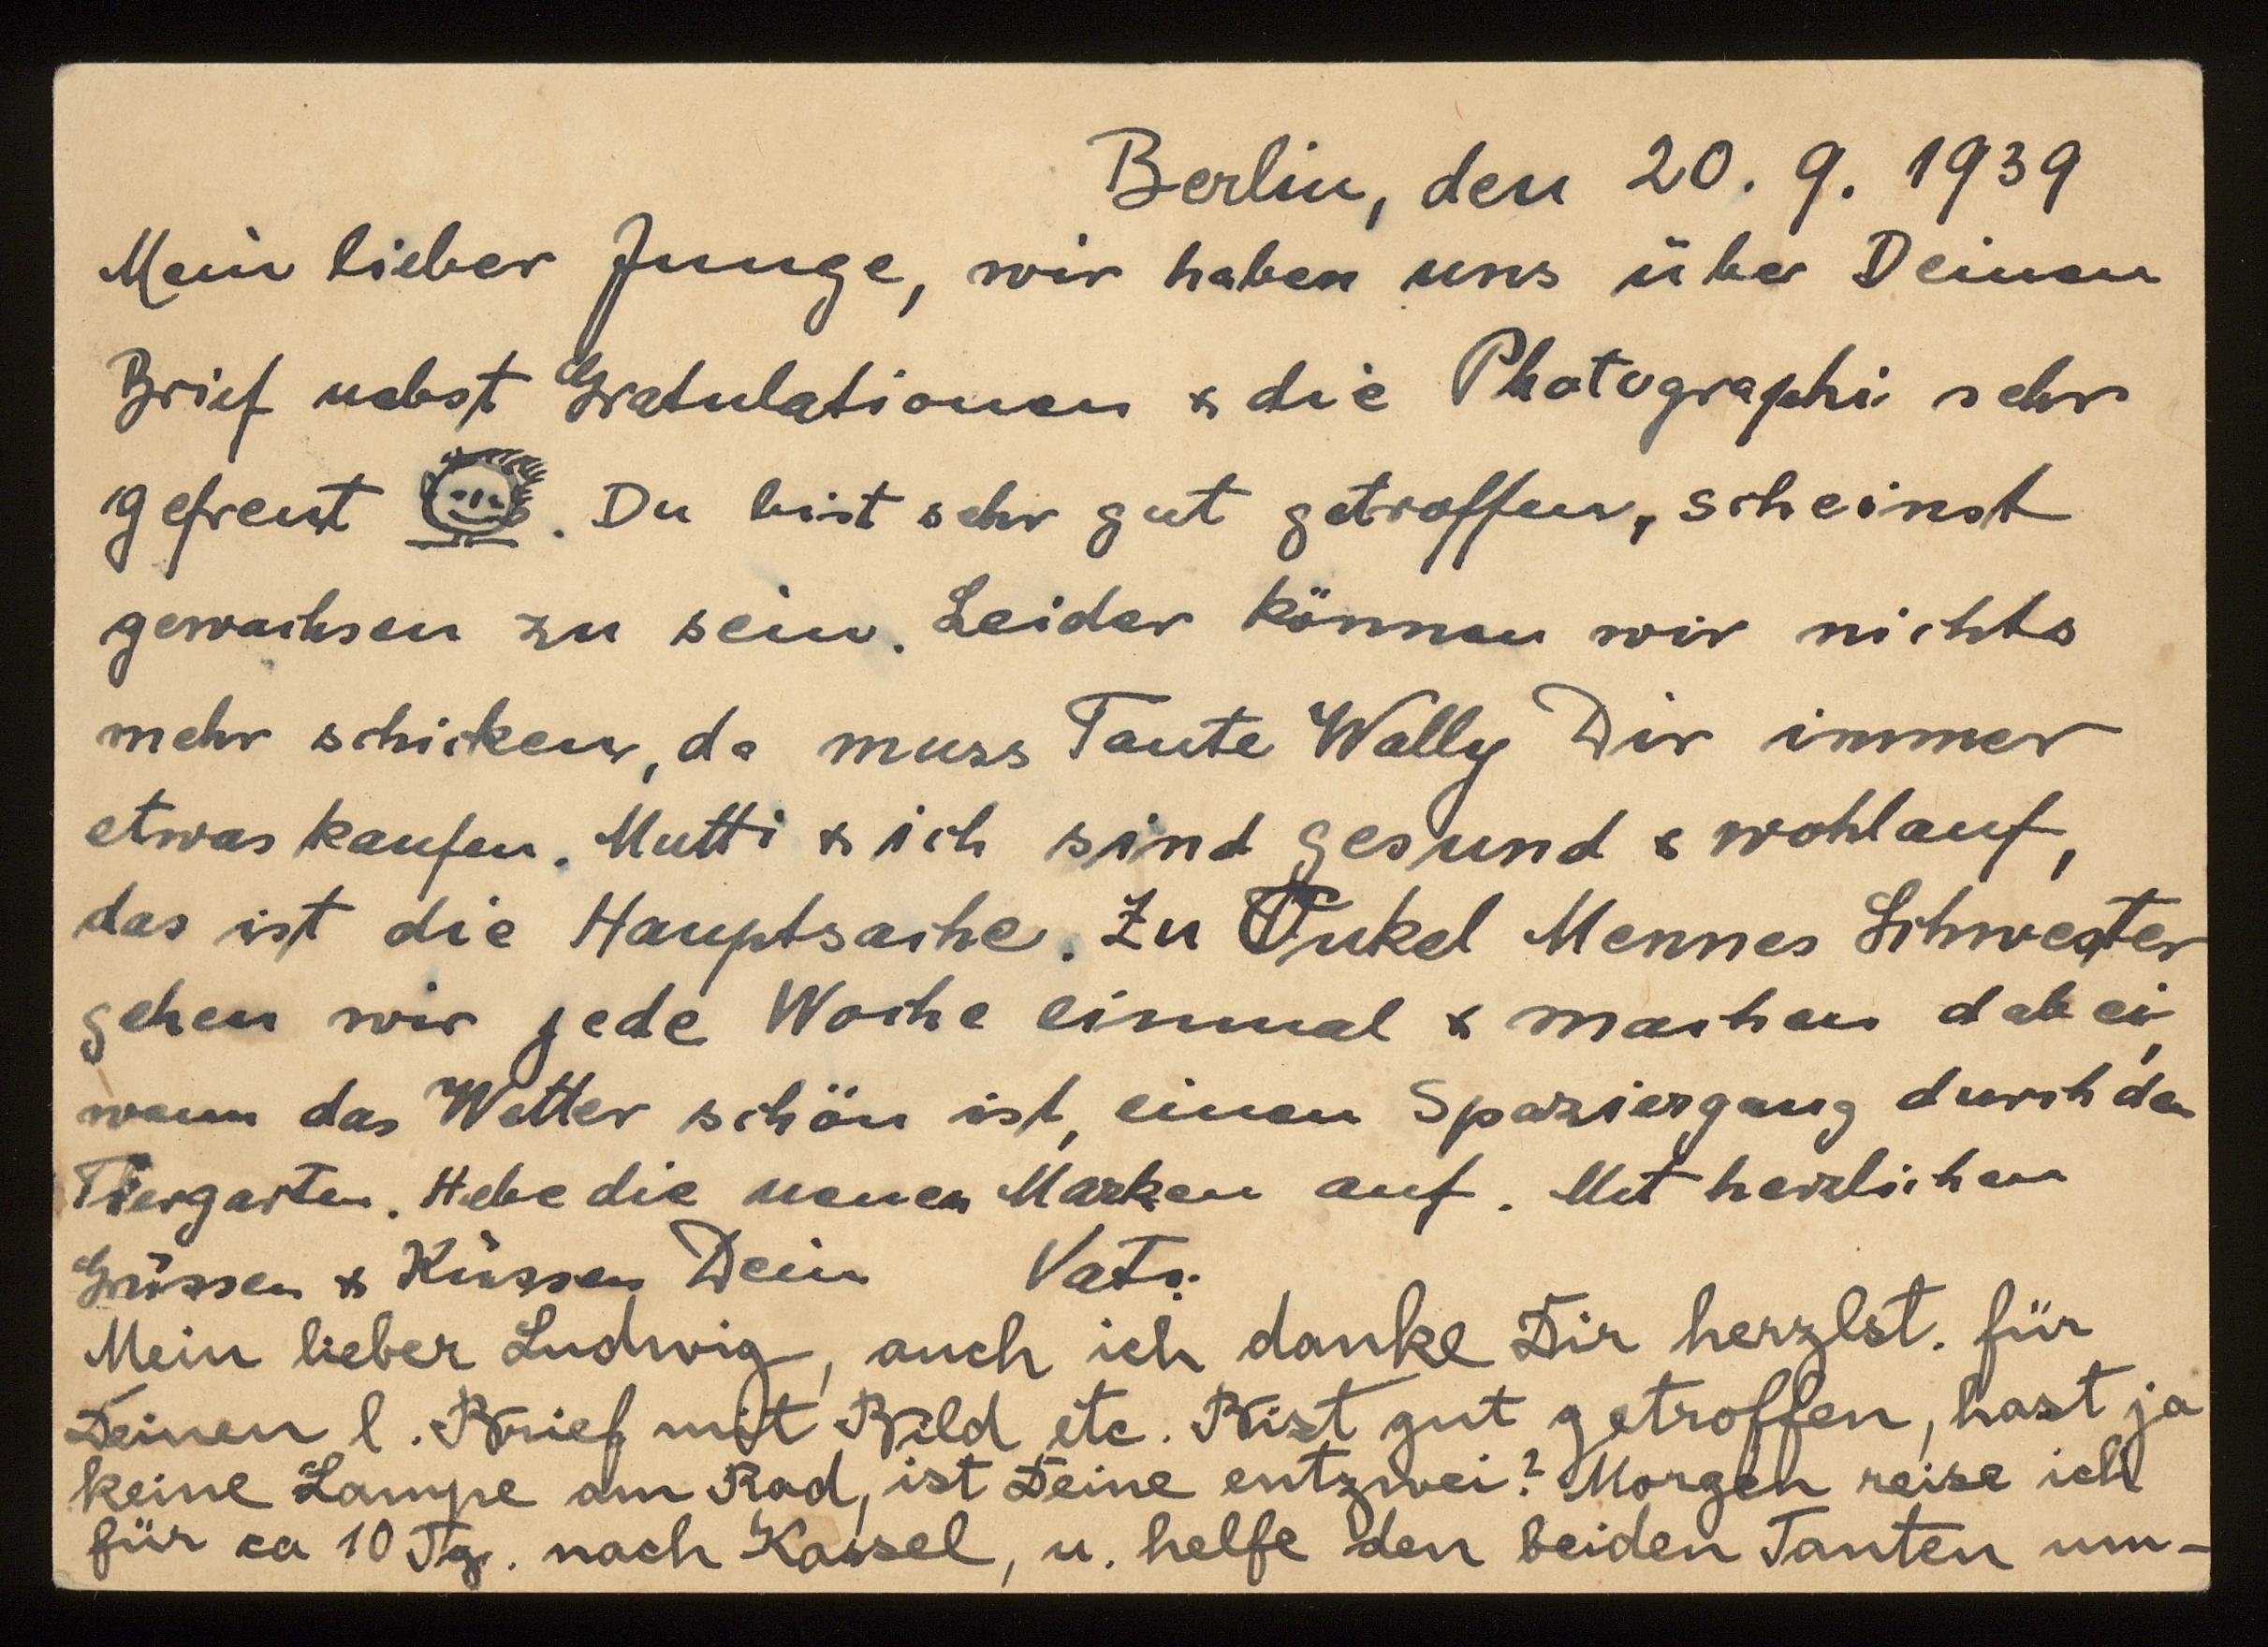 Berlin, den 20. 9. 1939
Mein lieber Junge, wir haben uns über Deinen
Brief nebst Gratulationen & die Photographie sehr
gefreut. Du bist sehr gut getroffen, scheinst
gewachsen zu sein. Leider können wir nichts
mehr schicken, da muss Tante Wally Dir immer
etwas kaufen. Mutti & ich sind gesund & wohlauf,
das ist die Hauptsache. Zu Onkel Mennes Schwester
gehen wir jede Woche einmal & machen dabei,
wenn das Wetter schön ist, einen Spaziergang durch den
Tiergarten. Hebe die neuen Marken auf. Mit herzlichen
Grüssen & Küssen Dein Vati.
Mein lieber Ludwig, auch ich danke Dir herzlst. für
Deinen l. Brief mit Bild etc. Bist gut getroffen, hast ja
keine Lampe am Rad, ist Deine entzwei? Morgen reise ich
für ca 10 Tg. nach Kassel, u. helfe den beiden Tanten um-